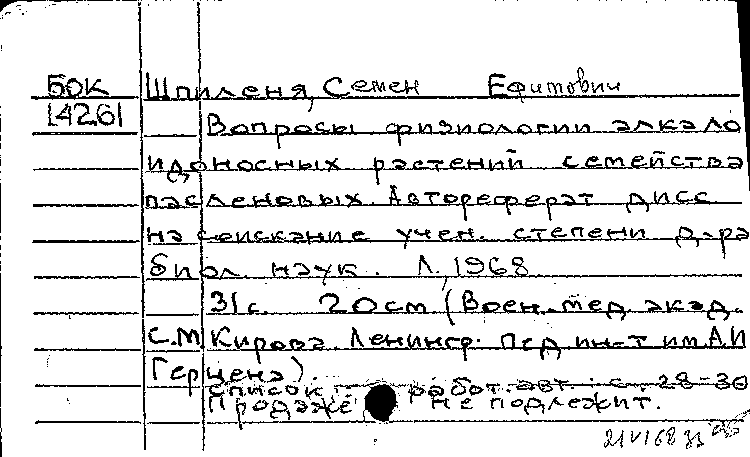 БОК Шпиленя, Семен Ефимович
14261
Вопросы физиологии алкало
идоносных растений семейства
пасленовых. Автореферат дисс.
на соискание учен. степени д-ра
биол. наук. Л., 1968
31 с. 20 см (Воен.-мед. акад.
С.М. Кирова. Ленингр. пед. ин-т им. А.И
Герцена).
Список работ авт.: с. 28-30
Продаже не подлежит.